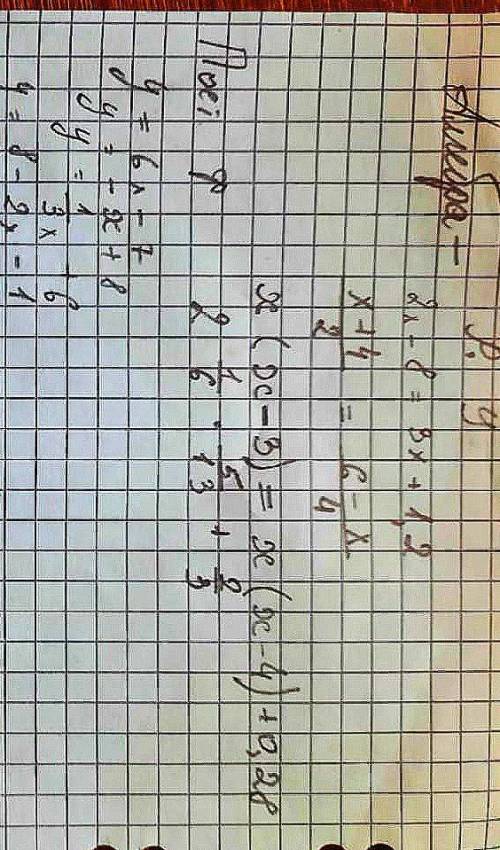 Алгебра –
2x - 8 = 3x + 1,2
x + 4 / 2 = 6 - x / 4
x (x - 3) = x (x - 4) + 0,28
2 1/6 · 5/13 + 2/3
y = 6x - 7
y = - x + 8
y = 1 / 3x + 6
y = 8 - 2x - 1